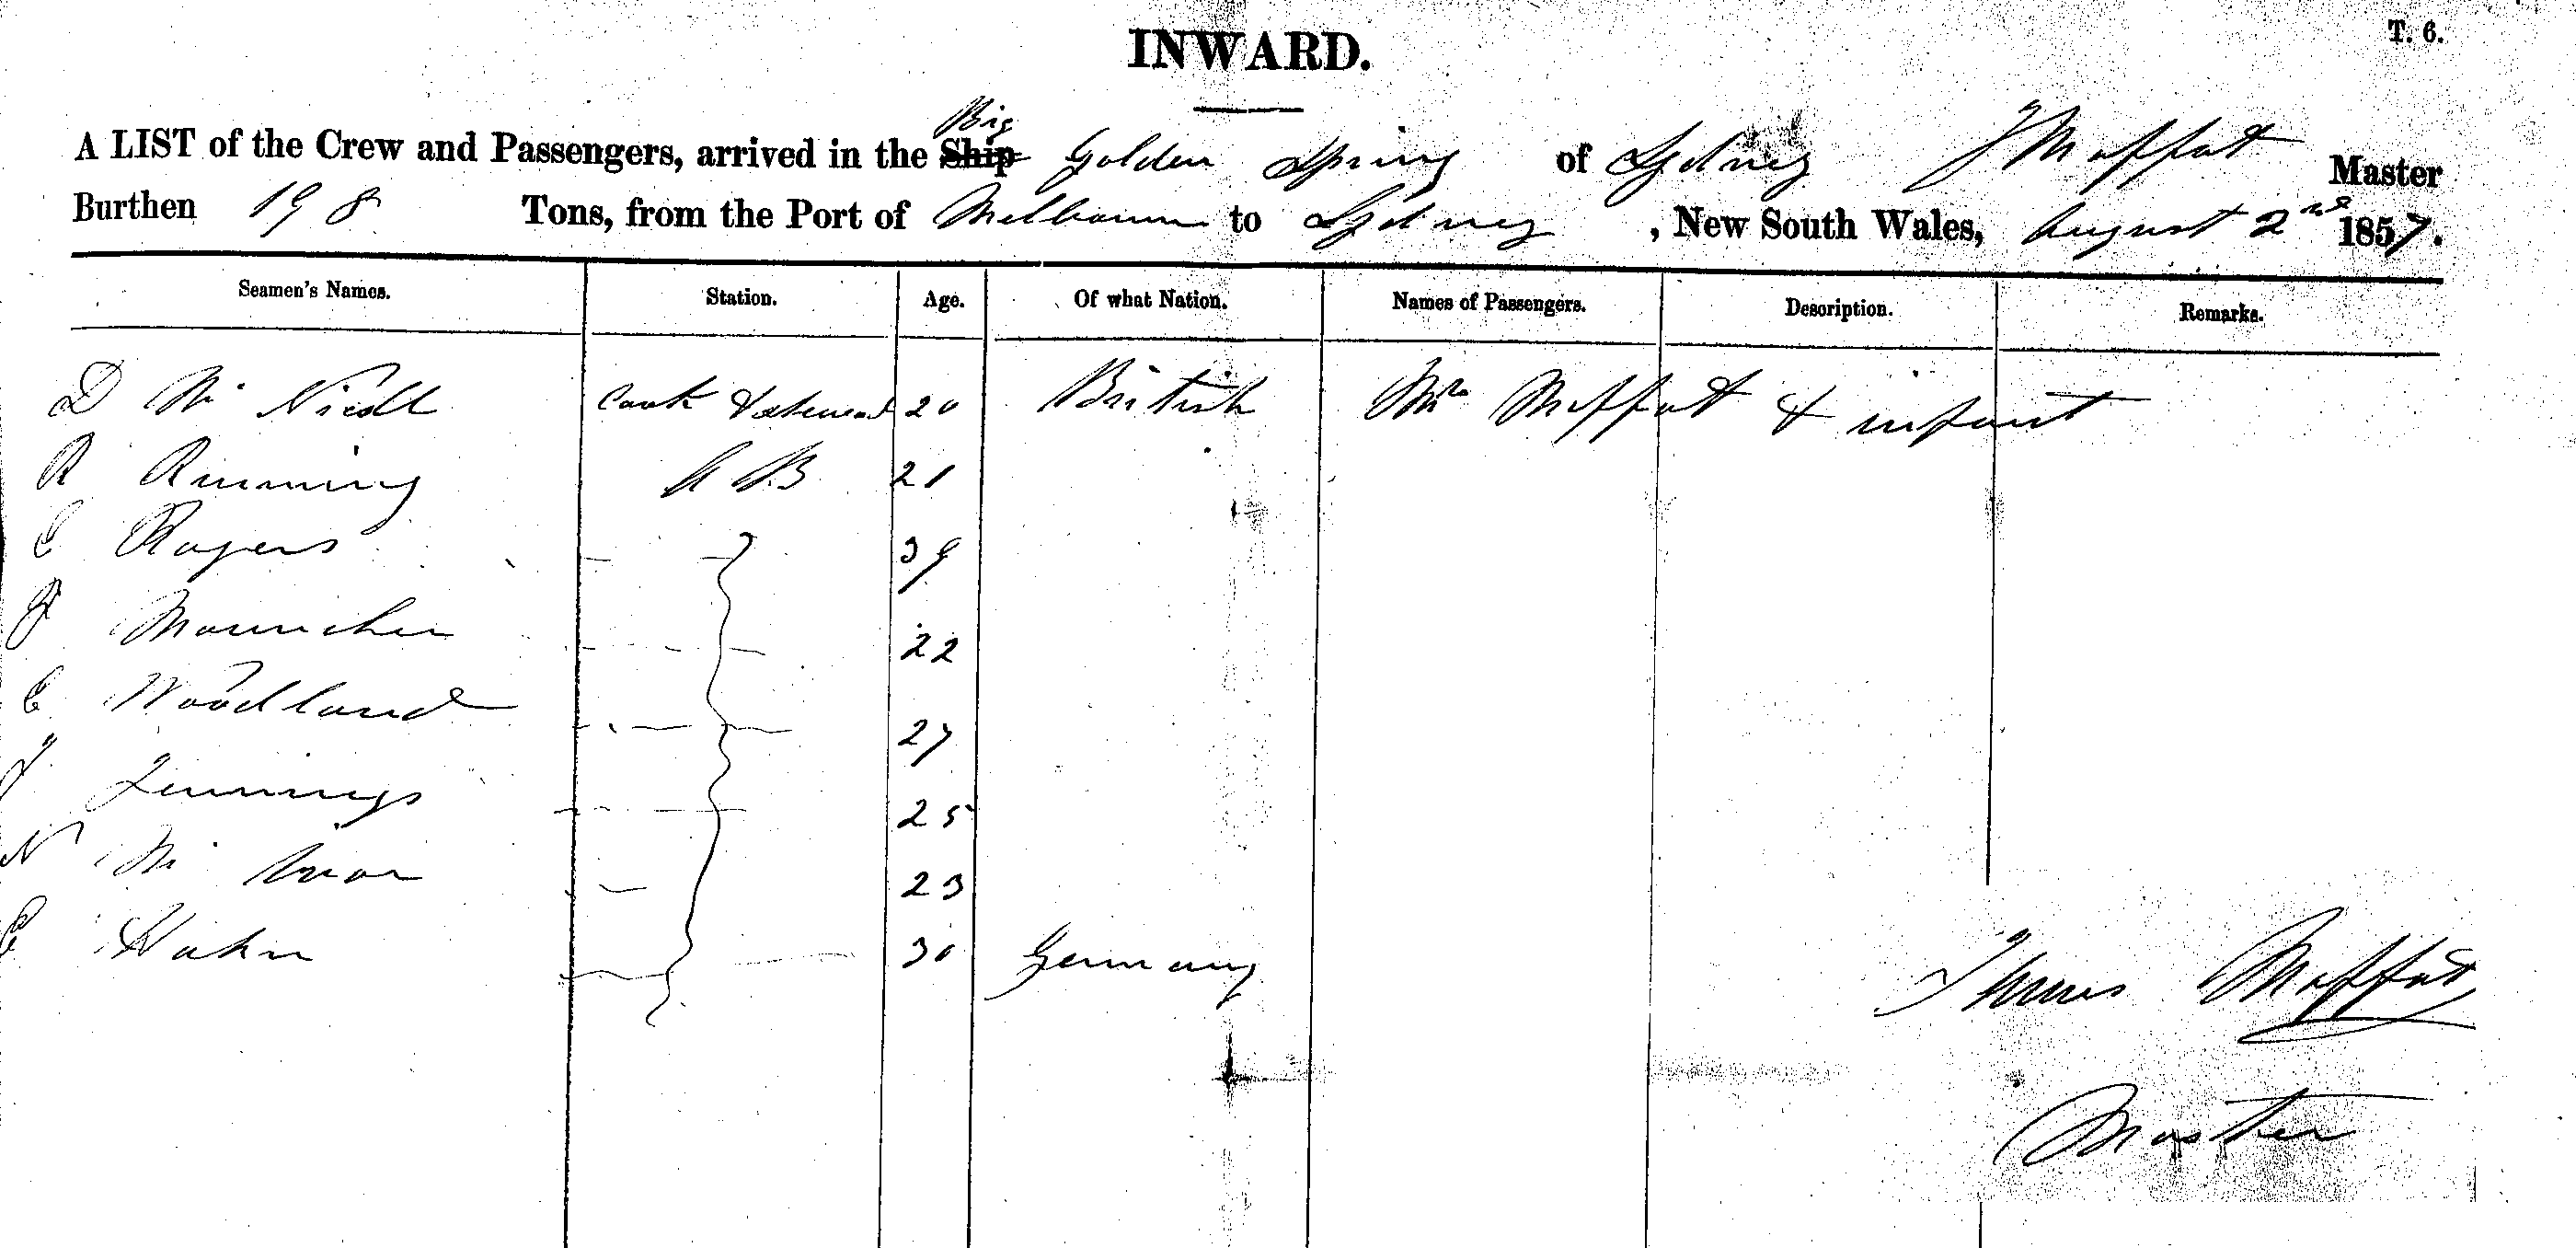 INWARD.
T. 6.
Big
A LIST of the Crew and Passengers, arrived in the Ship Golden Spring of Sydney T Moffat Master
Burthen 198 Tons, from the Port of Melbourne to Sydney , New South Wales, August 2nd 1857.
Seamen's Names. Station. Age. Of what Nation. Names of Passengers. Description. Remarks.
D Mc Nicoll Cook & Steward 20 British Mrs Moffat & infant
R Running A B 21
C Rogers 39
Mouncher 22
C Woodland 27
J Jennings 25
N Mc 23
Hahn 30 Germany
Thomas Moffat
Master